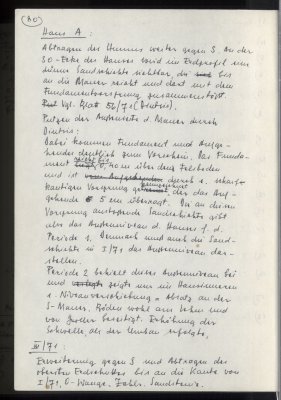 (80)
Haus A:
Abtragen des Humus weiter gegen S. An der
SO-Ecke des Hauses wird im Erdprofil eine
dünne Sandschichte sichtbar, die bis
an die Mauer reicht und dort mit dem
Fundamentvorsprung zusammenstößt.
Vgl. Blatt 56/71 (Dinstis).
Putzen der Außenseite d. Mauer durch
Dinstis:
Dabei kommen Fundament und Aufge-
hendes deutlich zum Vorschein. Das Funda-
ment reicht bis 40 cm über den Freiboden
und ist durch 1. scharf-
kantigen Vorsprung gekennzeichnet, der das Auf-
gehende 5 cm überragt. Da an diesen
Vorsprung anstoßende Sandschichte gibt
also das Außenniveau d. Hauses f. d.
Periode 1. Demnach wird auch die Sand-
schichte in I/71 das Außenniveau dar-
stellen.
Periode 2 behielt dieses Außenniveau bei
und zeigte nur im Hausinneren
1. Niveauverschiebung = Absatz an der
S-Mauer. Böden wohl aus Lehm und
von Zeiler beseitigt. Erhöhung der
Schwelle, als der Umbau erfolgte.
III/71:
Erweiterung gegen S und Abtragen der
obersten Erdschichte bis an die Kante von
I/71, O-Wange. Zahlr. Sandsteine.